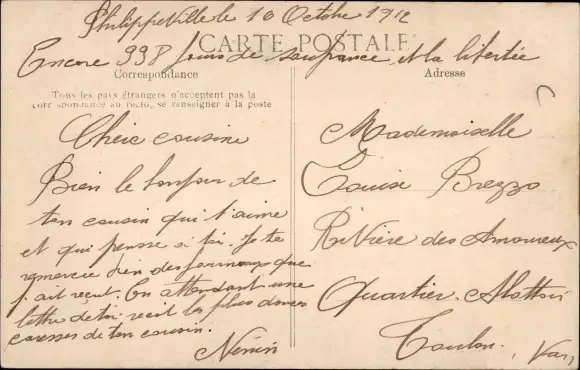 Philippeville le 10 Octobre 1912
CARTE POSTALE
Encore 998 jours de soufrance et la libertée
Correspondance
Adresse
Tous les pays étrangers n'acceptent pas la
correspondance au recto, se renseigner à la poste
Chère cousine
Bien le bonjour de
ton cousin qui t'aime
et qui pensse a toi. Je te
remercie bien des que
j'ait recut. En attendant une
lettre de toi recoit les plus douces
caresses de ton cousin.
Ninin
Mademoiselle
Louise Brezzo
Rivière des Amoureux
Quartier. Alattoir
Toulon.
(Var)